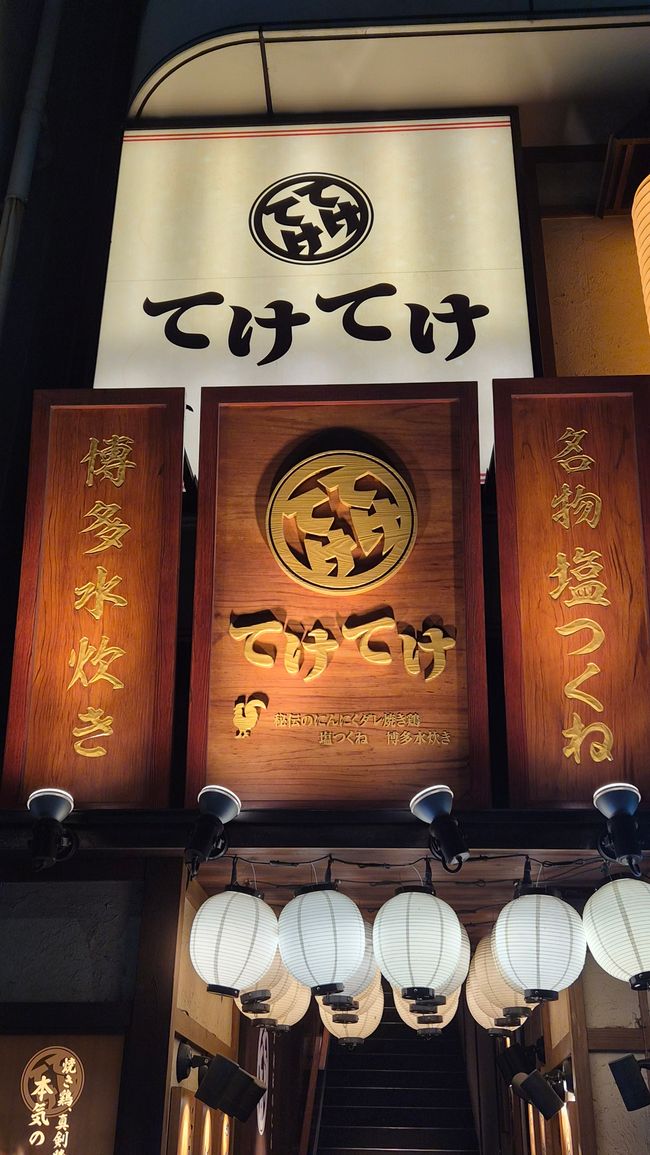 てけてけ
てけてけ
博多水炊き
てけてけ
てけてけ
秘伝のにんにくダレ焼き鶏
塩つくね 博多水炊き
名物 塩つくね
焼き鶏、真剣
本気の